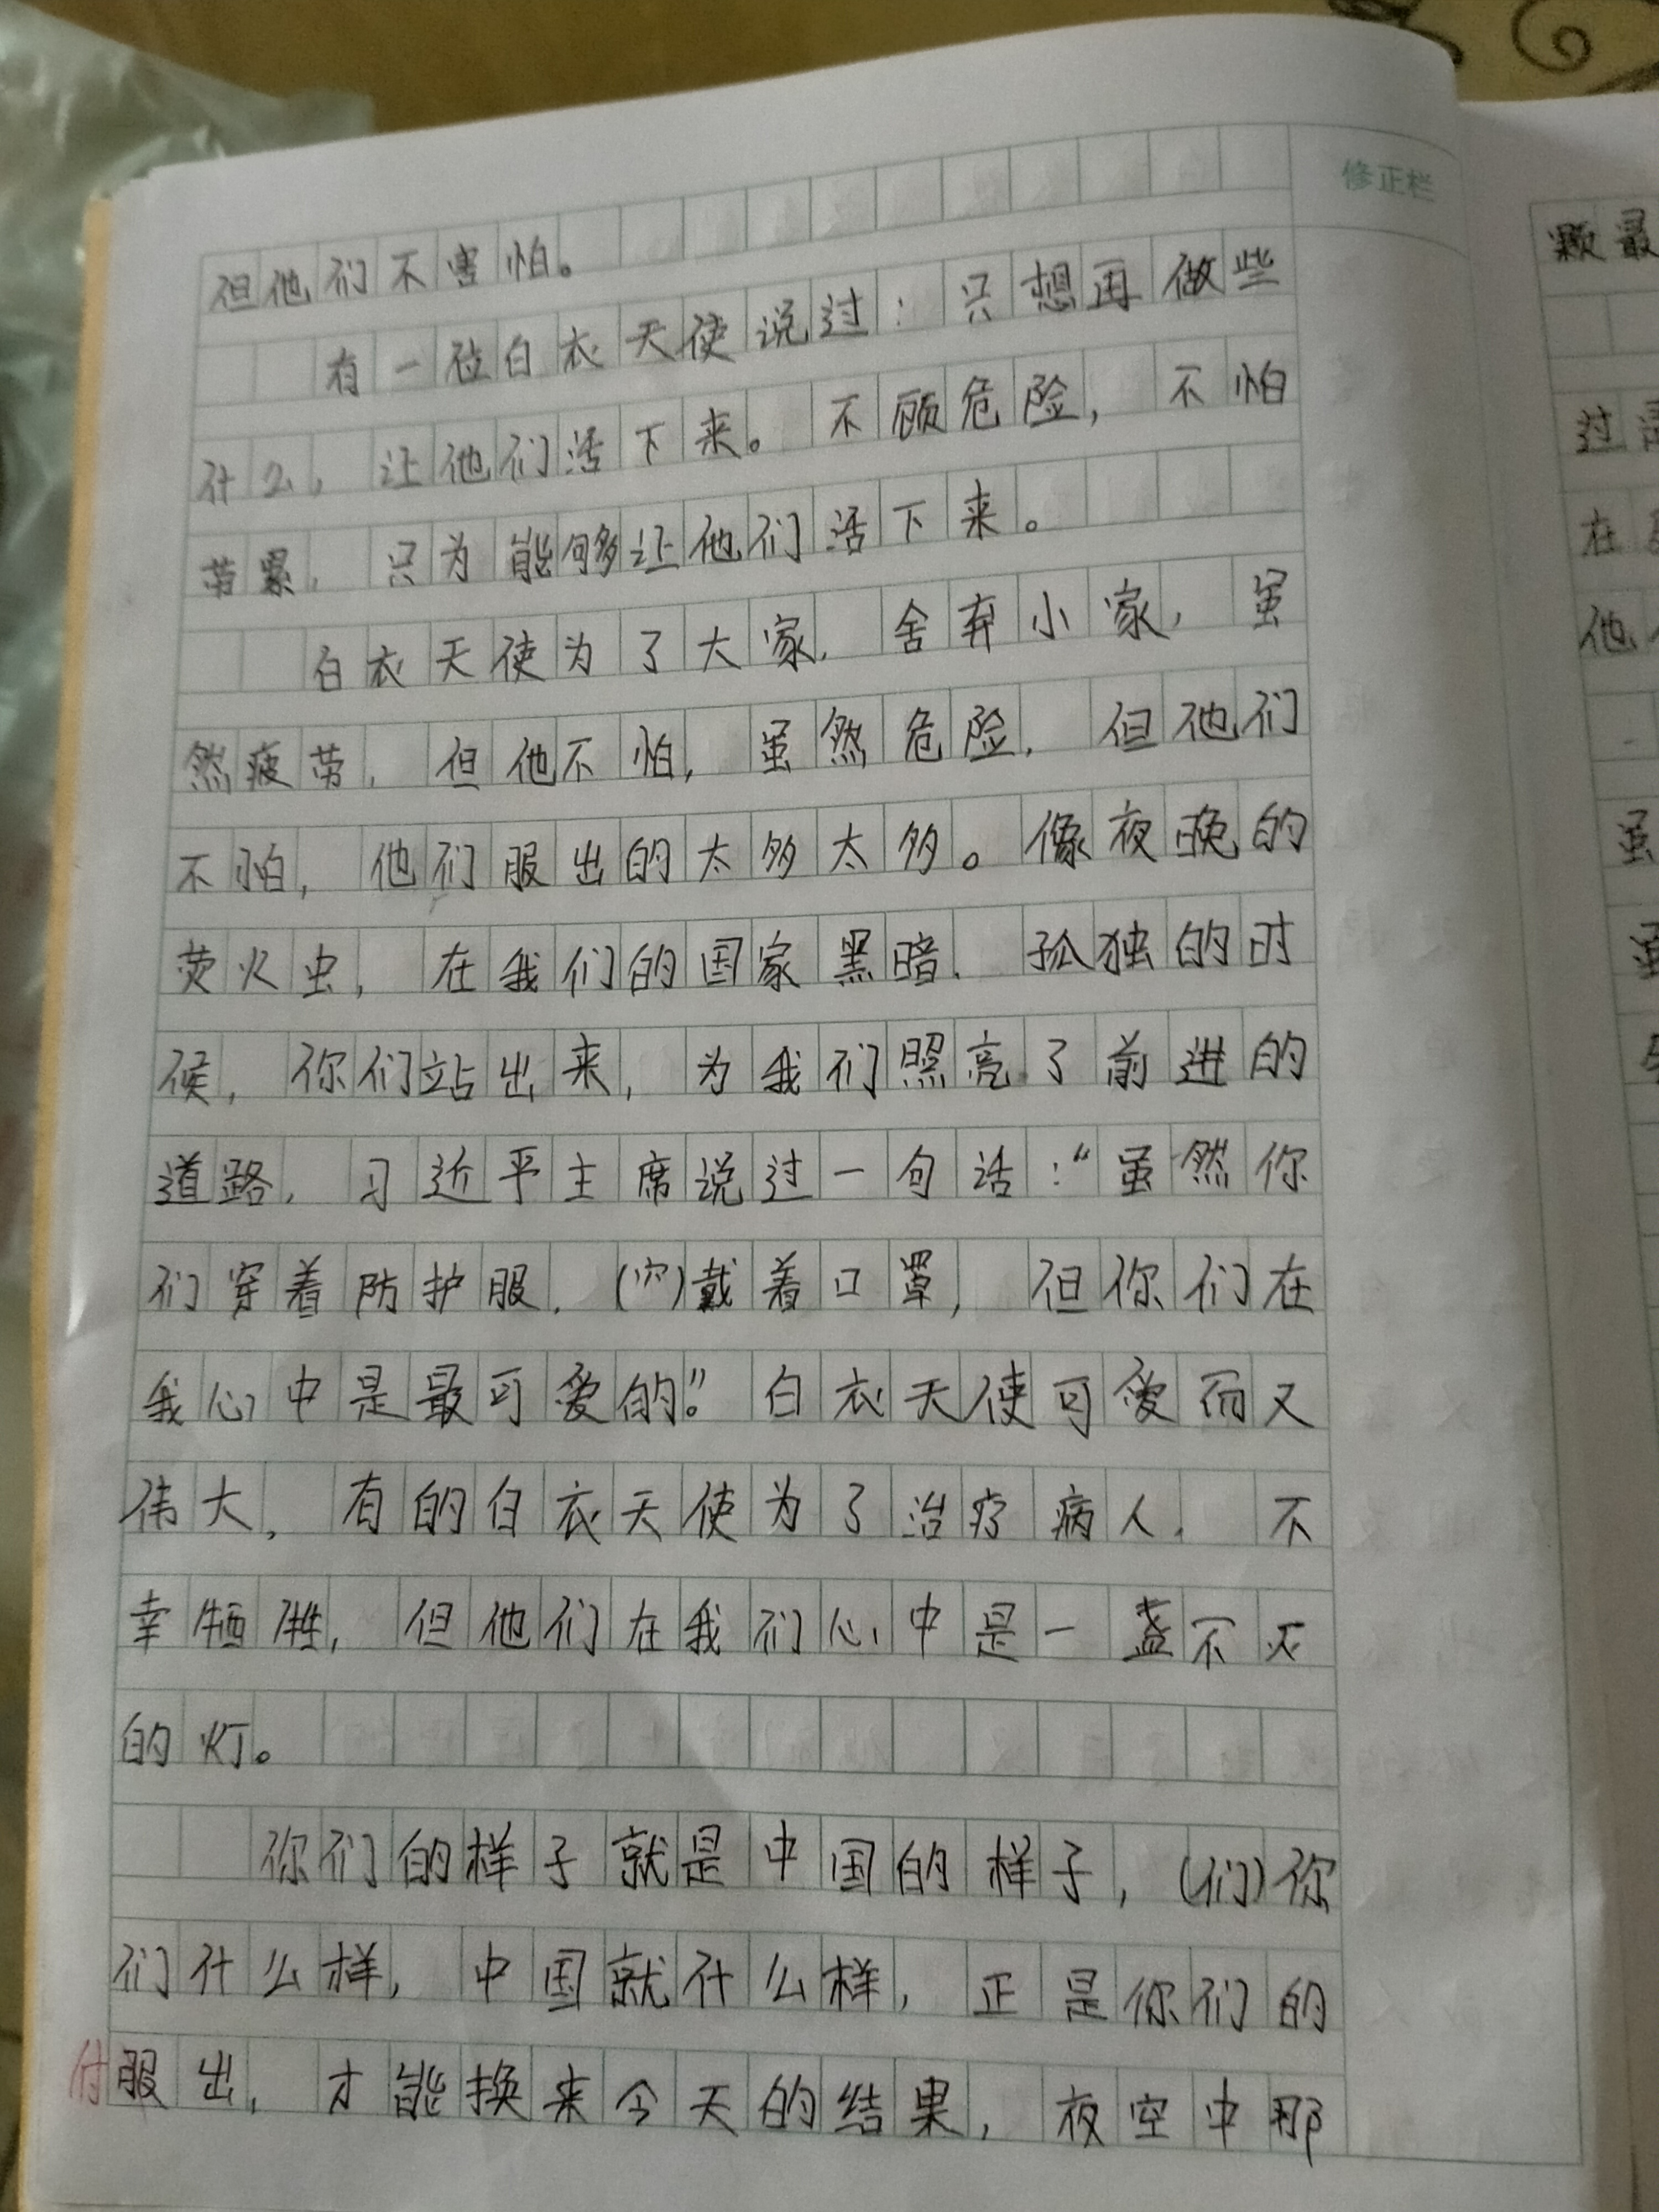 修正栏
但他们不害怕。
有一位白衣天使说过：只想再做些
什么，让他们活下来。不顾危险，不怕
劳累，只为能够让他们活下来。
白衣天使为了大家，舍弃小家，虽
然疲劳，但他不怕，虽然危险，但他们
不怕，他们服出的太多太多。像夜晚的
荧火虫，在我们的国家黑暗、孤独的时
候，你们站出来，为我们照亮了前进的
道路，习近平主席说过一句话：“虽然你
们穿着防护服，(穴)戴着口罩，但你们在
我心中是最可爱的。”白衣天使可爱而又
伟大，有的白衣天使为了治疗病人，不
幸牺牲，但他们在我们心中是一盏不灭
的灯。
你们的样子就是中国的样子，(们)你
们什么样，中国就什么样，正是你们的
付服出，才能换来今天的结果，夜空中那
颗最
过
在
他
虽